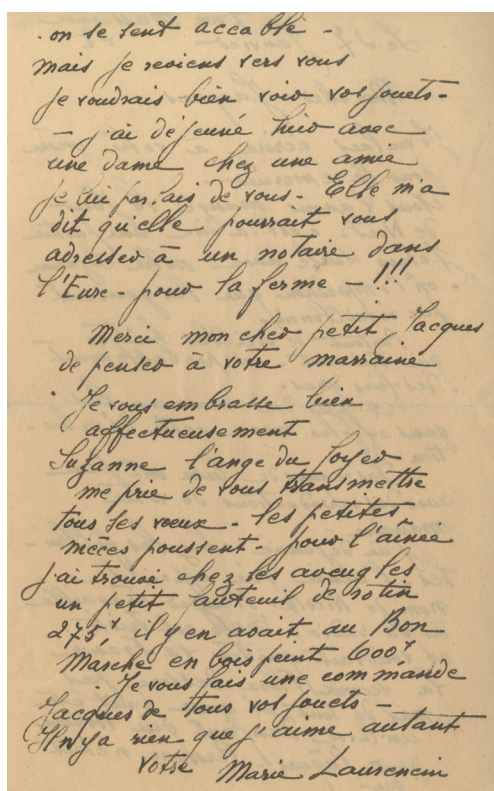 on se sent accablé -
mais je reviens vers vous
je voudrais bien voir vos jouets -
- j'ai déjeuné hier avec
une dame chez une amie
je lui parlais de vous - Elle m'a
dit qu'elle pourrait vous
adresser à un notaire dans
l'Eure - pour la ferme - !!!
Merci mon cher petit Jacques
de penser à votre marraine
Je vous embrasse bien
affectueusement
Suzanne l'ange du foyer
me prie de vous transmettre
tous ses vœux - les petites
nièces poussent - pour l'aînée
j'ai trouvé chez les aveugles
un petit fauteuil de rotin
275f, il y en avait au Bon
Marché en bois peint 600f
Je vous fais une commande
Jacques de tous vos jouets -
Il n'y a rien que j'aime autant
votre Marie Laurencin